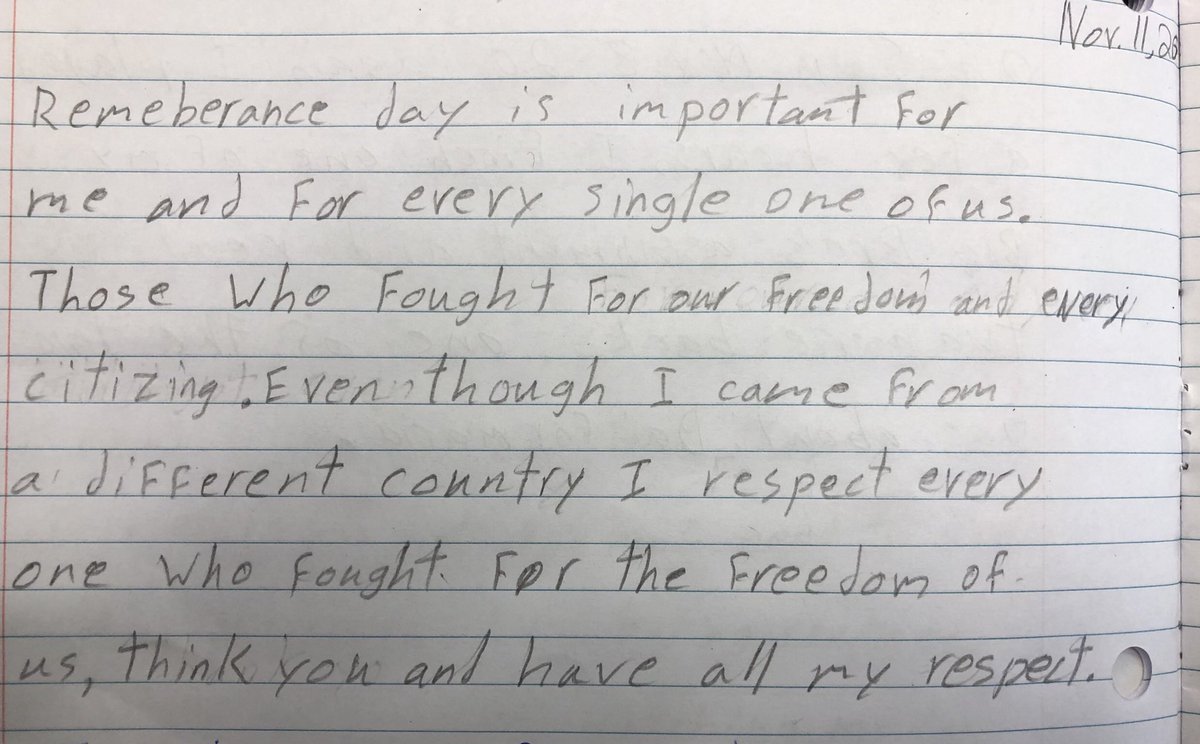 Nov. 11, 20
Remeberance day is important For
me and For every single one of us.
Those who Fought For our Freedom and every
citizing. Even though I came From
a different country I respect every
one who Fought. For the Freedom of.
us, think you and have all my respect.